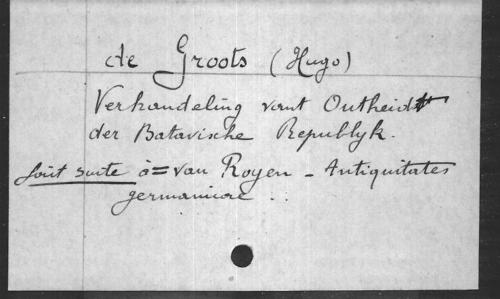 de Groots (Hugo)
Verhandeling vant Outheidt
der Batavische Republyk.
fait suite à = van Royen - Antiquitates
germanicae